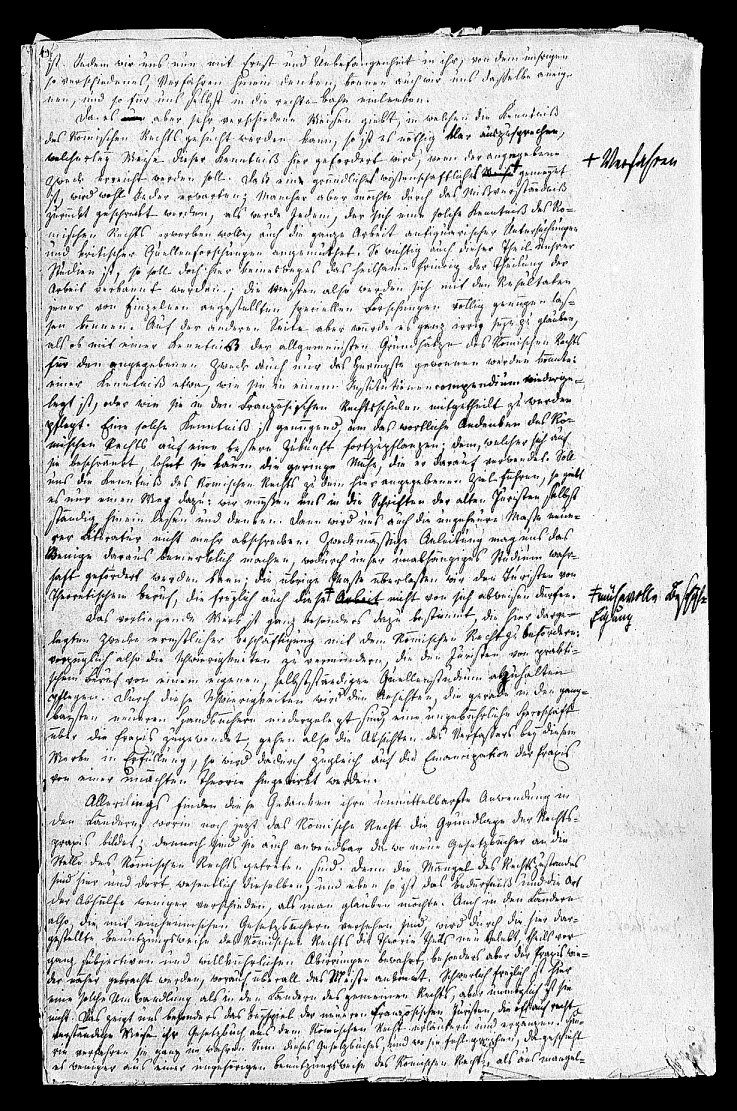 ist. Indem wir uns nun mit Ernst und Unbefangenheit in ihr, von dem unsrigen
so verschiedenes, Verfahren hinein denken, können auch wir uns dasselbe aneig-
nen, und so für uns selbst in die rechte Bahn einlenken.
Da es aber sehr verschiedene Weisen giebt, in welchen die Kenntniß
des Römischen Rechts gesucht werden kann, so ist es nöthig klar auszusprechen,
welcherley Weise dieser Kenntniß hier gefordert wird, wenn der angegebene
Zweck erreicht werden soll. Daß ein gründliches wissenschaftliches + gemeynt
ist, wird wohl Jeder erwarten; Mancher aber möchte durch das Misverständniß
zurück geschreckt werden, als werde Jedem, der sich eine solche Kenntniß des Rö-
mischen Rechts erwerben wolle, auch die ganze Arbeit antiquarischer Untersuchungen
und kritischer Quellenforschungen angemuthet. So wichtig auch dieser Theil unsrer
Studien ist, so soll doch hier keinesweges das heilsame Princip der Theilung der
Arbeit verkannt werden; die Meisten also werden sich mit den Resultaten
jener von Einzelnen angestellten speciellen Forschungen völlig genügen las-
sen können. Auf der anderen Seite aber würde es ganz irrig seyn zu glauben,
als ob mit einer Kenntniß der allgemeinsten Grundsätze des Römischen Rechts
für den angegebenen Zweck auch nur das Geringste gewonnen werden könnte:
einer Kenntniß etwa, wie sie in einem Institutionencompendium niederge-
legt ist, oder wie sie in den Französischen Rechtsschulen mitgetheilt zu werden
pflegt. Eine solche Kenntniß ist genügend, um das wörtliche Andenken des Rö-
mischen Rechts auf eine bessere Zukunft fortzupflanzen; dem, welcher sich auf
sie beschränkt, lohnt sie kaum die geringe Mühe, die er darauf verwendet. Soll
uns die Kenntniß des Römischen Rechts zu dem hier angegebenen Ziel führen, so giebt
es nur einen Weg dazu: wir müssen uns in die Schriften der alten Juristen selbst-
ständig hinein lesen und denken. Dann wird uns auch die ungeheure Masse neue-
rer Literatur nicht mehr abschrecken. Zweckmäßige Anleitung mag uns das
Wenige daraus bemerklich machen, wodurch unser unabhängiges Studium wahr-
haft gefördert werden kann; die übrige Masse überlassen wir den Juristen von
theoretischem Beruf, die freylich auch diese + Arbeit nicht von sich abweisen dürfen.
Das vorliegende Werk ist ganz besonders dazu bestimmt, die hier darge-
legten Zwecke ernstlicher Beschäftigung mit dem Römischen Recht zu befördern:
vorzüglich also die Schwierigkeiten zu vermindern, die den Juristen von prakti-
schem Beruf von einem eigenen, selbstständigen Quellenstudium abzuhalten
pflegen. Durch diese Schwierigkeiten wird den Ansichten, die gerade in den gang-
barsten neueren Handbüchern niedergelegt sind, eine ungebührliche Herrschaft
über die Praxis zugewendet; gehen also die Absichten des Verfassers bey diesem
Werke in Erfüllung, so wird dadurch zugleich auf die Emancipation der Praxis
von einer unächten Theorie hingewirkt werden.
Allerdings finden diese Gedanken ihre unmittelbarste Anwendung in
den Ländern, worin noch jetzt das Römische Recht die Grundlage der Rechts-
praxis bildet; dennoch sind sie auch anwendbar da wo neue Gesetzbücher an die
Stelle des Römischen Rechts getreten sind. Denn die Mängel des Rechtszustandes
sind hier und dort wesentlich dieselben, und eben so ist das Bedürfniß und die Art
der Abhülfe weniger verschieden, als man glauben möchte. Auch in den Ländern
also, die mit einheimischen Gesetzbüchern versehen sind, wird durch die hier dar-
gestellte Benutzungsweise des Römischen Rechts die Theorie theils neu belebt, theils vor
ganz subjectiven und willkührlichen Abirrungen bewahrt, besonders aber der Praxis wie-
der näher gebracht werden, worauf überall das Meiste ankommt. Schwerer freylich ist hier
eine solche Umwandlung als in den Ländern des gemeinen Rechts, aber unmöglich ist sie
nicht. Das zeigt uns besonders das Beyspiel der neueren Französischen Juristen, die oft auf recht
verständige Weise ihr Gesetzbuch aus dem Römischen Recht erläutern und ergänzen. Hier-
in verfahren sie ganz im wahren Sinn dieses Gesetzbuches, und wo sie fehl greifen, da geschieht
es weniger aus einer ungehörigen Benutzungsweise des Römischen Rechts, als aus mangel-
+ Verfahren
+ mühevolle Beschäf-
tigung